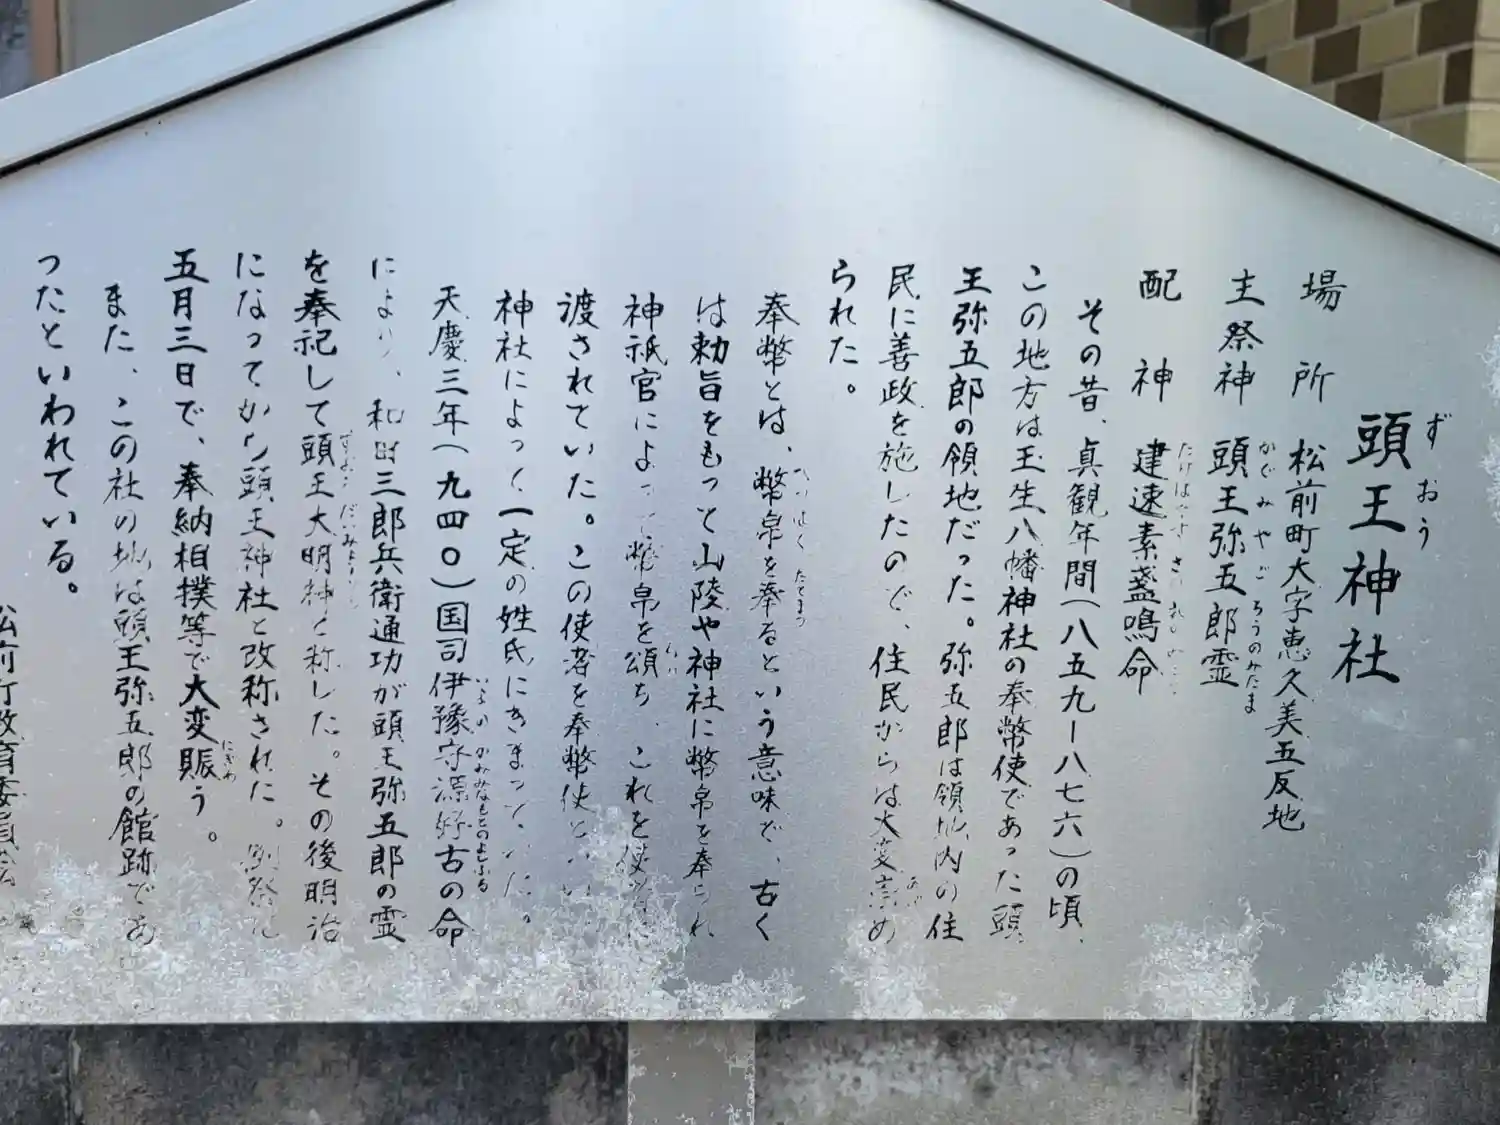 頭王神社
ずおう
場所 松前町大字恵久美五反地
主祭神 頭王弥五郎霊
かどみやごろうのみたま
配神 建速素盞鳴命
その昔、貞観年間(八五九ー八七六)の頃、
この地方は玉生八幡神社の奉幣使であった頭
王弥五郎の領地だった。弥五郎は領地内の住
民に善政を施したので、住民からは大変崇め
られた。
奉幣とは、幣帛を奉るという意味で、古く
は勅旨をもって山陵や神社に幣帛を奉られ
神祇官によって幣帛を頒ち、これを使
渡されていた。この使者を奉幣使とい
神社によって一定の姓氏にきまっていた。
天慶三年(九四〇)国司伊豫守源好古の命
いよのかみみなもとのよしふる
により、和田三郎兵衛通功が頭王弥五郎の霊
を奉祀して頭王大明神と称した。その後明治
になってから頭王神社と改称された。例祭は
五月三日で、奉納相撲等で大変賑う。
にぎわ
また、この社の地は頭王弥五郎の館跡であ
ったといわれている。
松前町教育委員会